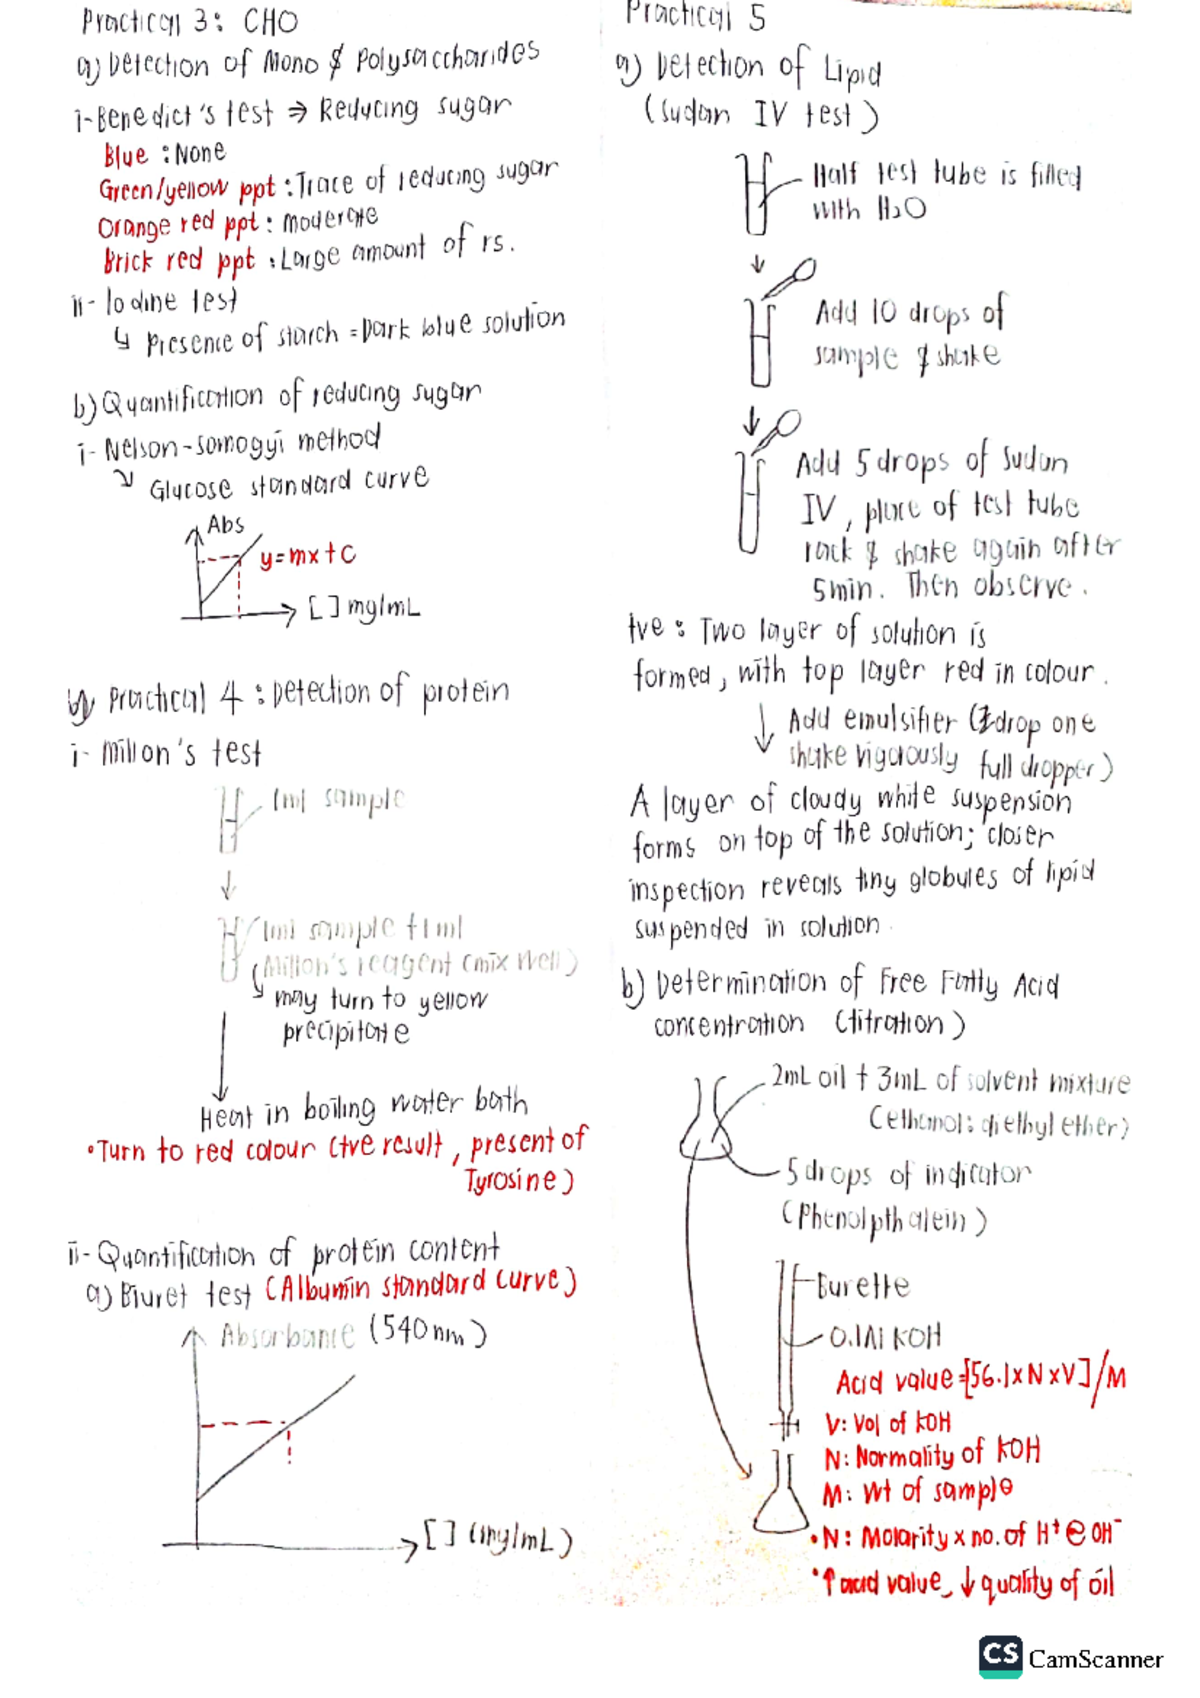 Practical 3: CHO
a) Detection of Mono & Polysaccharides
i- Benedict's test ⇒ Reducing sugar
Blue : None
Green/yellow ppt : Trace of reducing sugar
Orange red ppt : moderate
Brick red ppt : Large amount of rs.
ii- Iodine test
↳ Presence of starch = Dark blue solution
b) Quantification of reducing sugar
i- Nelson-somogyi method
↘ Glucose standard curve
Abs
y=mx+c
[ ] mg/mL
Practical 4 : Detection of protein
i- millon's test
1ml sample
1ml sample +1ml
Millon's reagent (mix well)
may turn to yellow
precipitate
Heat in boiling water bath
•Turn to red colour (+ve result, present of
Tyrosine)
ii- Quantification of protein content
a) Biuret test (Albumin standard curve)
Absorbance (540nm)
[ ] (mg/mL)
Practical 5
a) Detection of Lipid
(sudan IV test)
Half test tube is filled
with H2O
Add 10 drops of
sample & shake
Add 5 drops of sudan
IV, place of test tube
rack & shake again after
5min. Then observe.
+ve : Two layer of solution is
formed, with top layer red in colour.
Add emulsifier (drop one
shake vigorously full dropper)
A layer of cloudy white suspension
forms on top of the solution; closer
inspection reveals tiny globules of lipid
suspended in solution.
b) Determination of Free Fatty Acid
concentration (titration)
2mL oil + 3mL of solvent mixture
(ethanol: diethyl ether)
5 drops of indicator
(Phenolpthalein)
Burette
0.1M KOH
Acid value=[56.1xNxV]/M
V: Vol of KOH
N: Normality of KOH
M: wt of sample
•N: Molarity x no. of H+ @ OH-
•↑ acid value, ↓ quality of oil
CS CamScanner